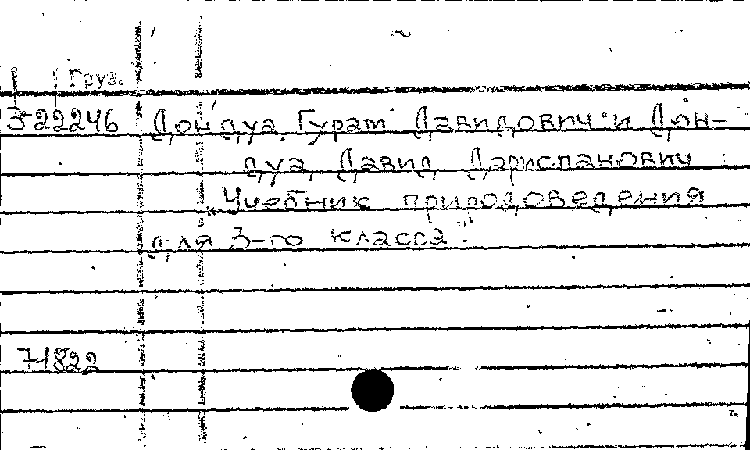 Груз.
3-22246 Дондуа, Гурам Давидович и Дон-
дуа, Давид Дариспанович
"Учебник природоведения
для 3-го класса".
71822